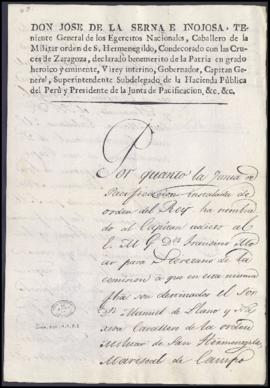 DON JOSE DE LA SERNA E INOJOSA, TE-
niente General de los Egercitos Nacionales, Caballero de la
Militar orden de S. Hermenegildo, Condecorado con las Cru-
ces de Zaragoza, declarado benemerito de la Patria en grado
heroico y eminente, Virey interino, Gobernador, Capitan Ge-
neral, Superintendente Subdelegado de la Hacienda Pública
del Perú y Presidente de la Junta de Pacificacion, &c. &c.
Por quanto la Junta de
Pacificacion instalada de
orden del Rey ha nombra
do al Capitan
E. M. G. Dn Francisco
par para Secretario de la
comision a que en esta misma
fha van destinados el Sor
Dn Manuel de Llano y
Cavallero de la orden
Militar de San Hermenegildo
Mariscal de Campo